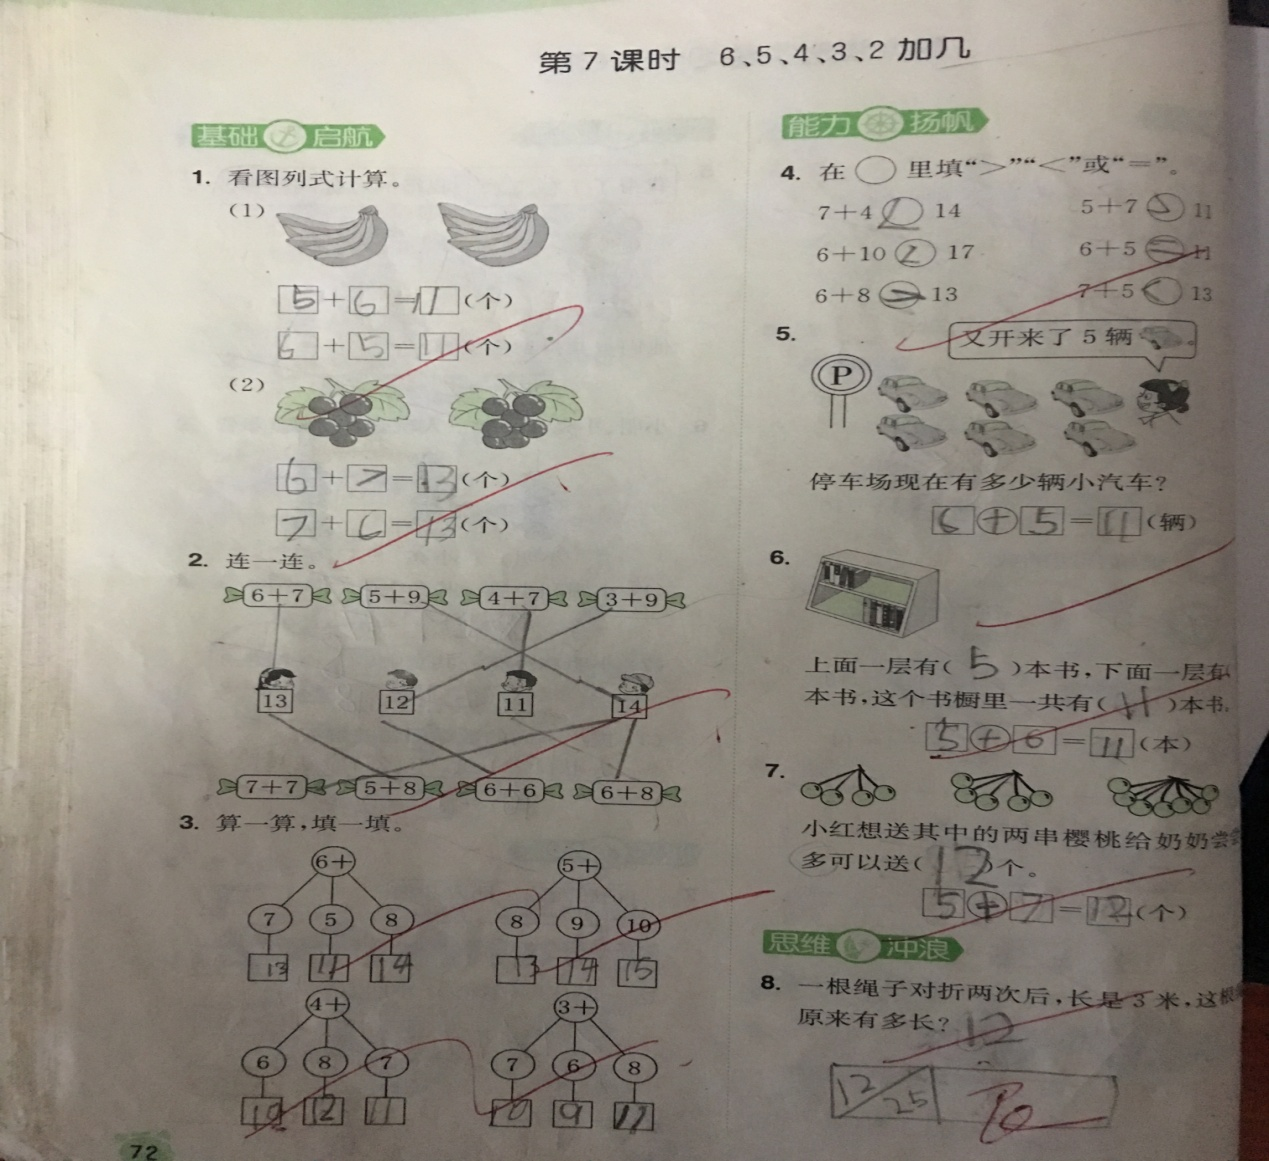 第7课时 6、5、4、3、2加几
基础启航
1. 看图列式计算。
(1)
5+6=11(个)
6+5=11(个)
(2)
6+7=13(个)
7+6=13(个)
2. 连一连。
6+7 5+9 4+7 3+9
13 12 11 14
7+7 5+8 6+6 6+8
3. 算一算,填一填。
6+ 5+
7 5 8 8 9 10
13 11 14 13 14 15
4+ 3+
6 8 7 7 6 8
10 12 11 10 9 11
72
能力扬帆
4. 在○里填“>”“<”或“=”。
7+4<14 5+7>11
6+10<17 6+5=11
6+8>13 7+5<13
5.
又开来了5辆。
P
停车场现在有多少辆小汽车?
6+5=11(辆)
6.
上面一层有(5)本书,下面一层有
本书,这个书橱里一共有(11)本书.
5+6=11(本)
7.
小红想送其中的两串樱桃给奶奶尝
多可以送(12)个。
5+7=12(个)
思维冲浪
8. 一根绳子对折两次后,长是3米,这根
原来有多长? 12
12/25